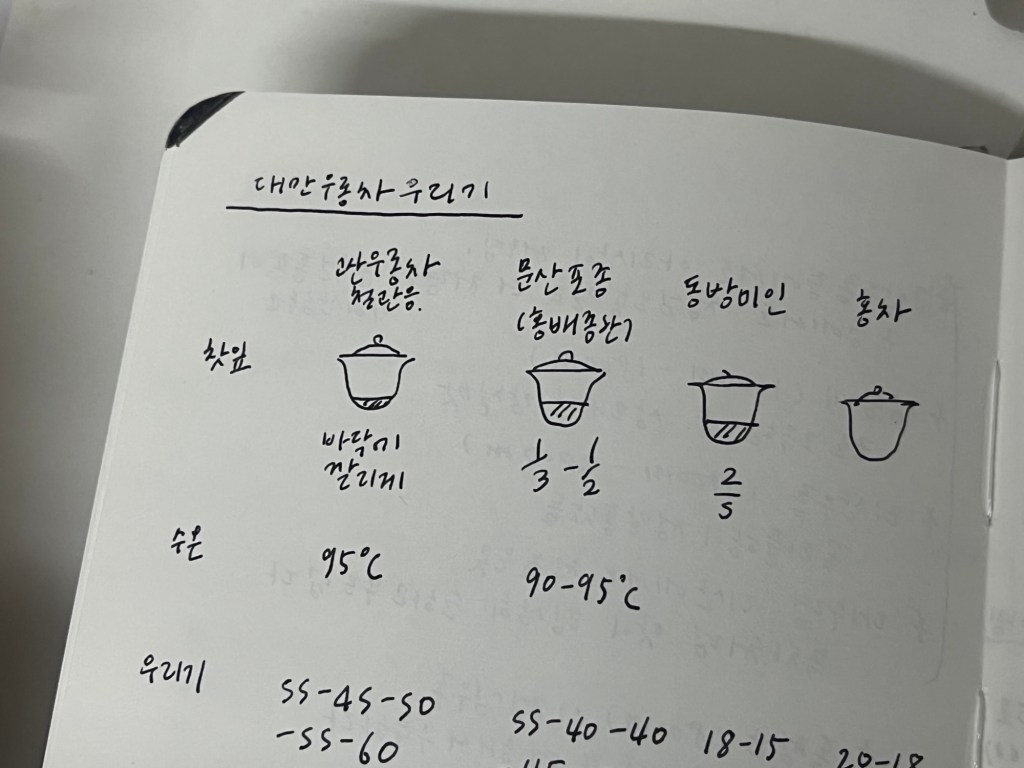 대만우롱차 우리기
관우롱차
철관음.
문산포종
(홍배종완)
동방미인
홍차
찻잎
바닥이
깔리게
1/3 - 1/2
2/5
수온
95°C
90-95°C
우리기
55-45-50
-55-60
55-40-40
18-15
20-18